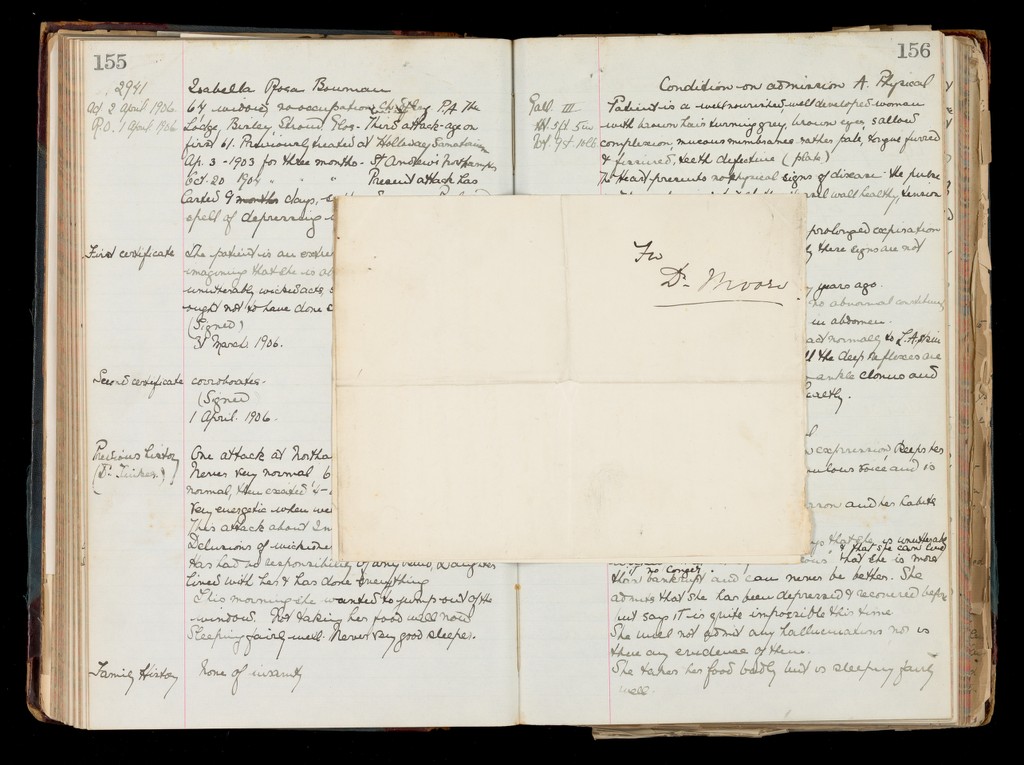 155
2941
Isabella Rosa Bowman
Ad. 2 April 1906
64 widow, no occupation, Ch. of Eng. P.A. The
R.O. 1 April 1906
Lodge, Bisley, Stroud Glos. Third attack - age on
first 61. Previously treated at Holloway Sanatorium
Ap. 3 - 1903 for three months - St Andrew's Northampton
Oct. 20 1904 " " " Present attack has
lasted 9 months days,
spell of depression
First certificate
The patient is an
imaginings that she is
unutterably wicked acts,
ought not to have done
(Signed)
31 March 1906.
Second certificate
corroborates.
(Signed
1 April. 1906.
Previous history
One attack at
(Dr. )
Never very normal
normal, then excited
Very energetic when
This attack about
Delusions of
Has had no responsibility of any kind, Daughter
lived with her & has done everything
This morning she wanted to jump out of the
window. Not taking her food well now
Sleeping fairly well. Never very good sleeper.
Family History
None of insanity
To
Dr Moore.
156
Condition on admission A. Physical
Gall III
Patient is a well nourished well developed woman
Ht 5ft 5in
with brown hair turning grey, brown eyes, sallow
Wt. 9st 10lb
complexion, mucous membranes rather pale, tongue furred
& fissured, teeth defective (plate)
The Heart presents no physical signs of disease - the pulse
wall healthy, tension
prolonged expiration
these signs are not
years ago.
no abnormal
in abdomen.
normally to L. A, &
the deep reflexes are
ankle clonus and
expression, keeps her
voice and is
and her habits
that she is unutterable
& that she can live
no longer.
that she is more
than bankrupt and can never be better. She
admits that she has been depressed & recovered before
but says it is quite impossible this time
She will not admit any hallucinations nor is
there any evidence of them.
She takes her food badly but is sleeping fairly
well.